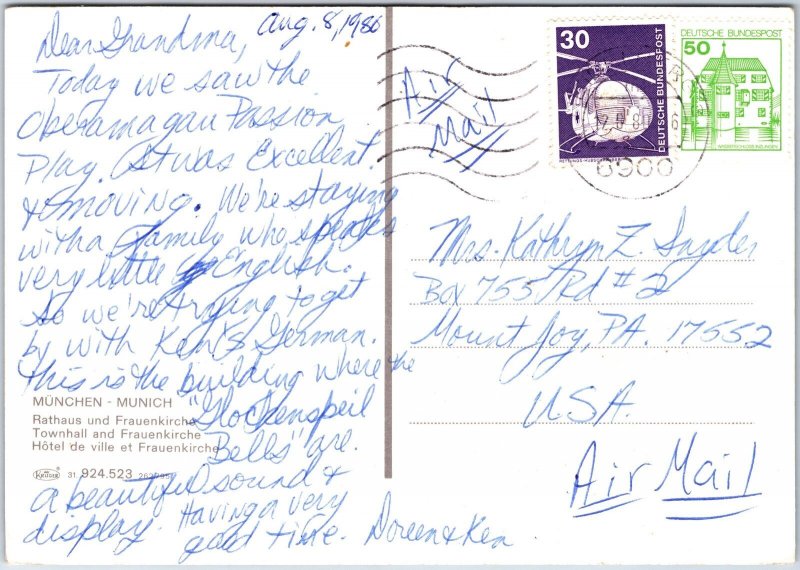 Aug. 8, 1980
Dear Grandma,
Today we saw the
Oberamagau Passion
Play. It was Excellent
& moving. We're staying
with a Family who speaks
very little English.
So we're trying to get
by with Ken's German.
This is the building where the
"Glockenspeil
Bells" are.
a beautiful sound &
display. Having a very
good time. Doreen & Ken
MÜNCHEN - MUNICH
Rathaus und Frauenkirche
Townhall and Frauenkirche
Hôtel de ville et Frauenkirche
KRÜGER 31 924.523
Air
Mail
30
DEUTSCHE BUNDESPOST
DEUTSCHE BUNDESPOST
50
WASSERSCHLOSS INZLINGEN
Mrs. Kathryn Z. Snyder
Box 755 Rd #2
Mount Joy, PA. 17552
U.S.A.
Air Mail